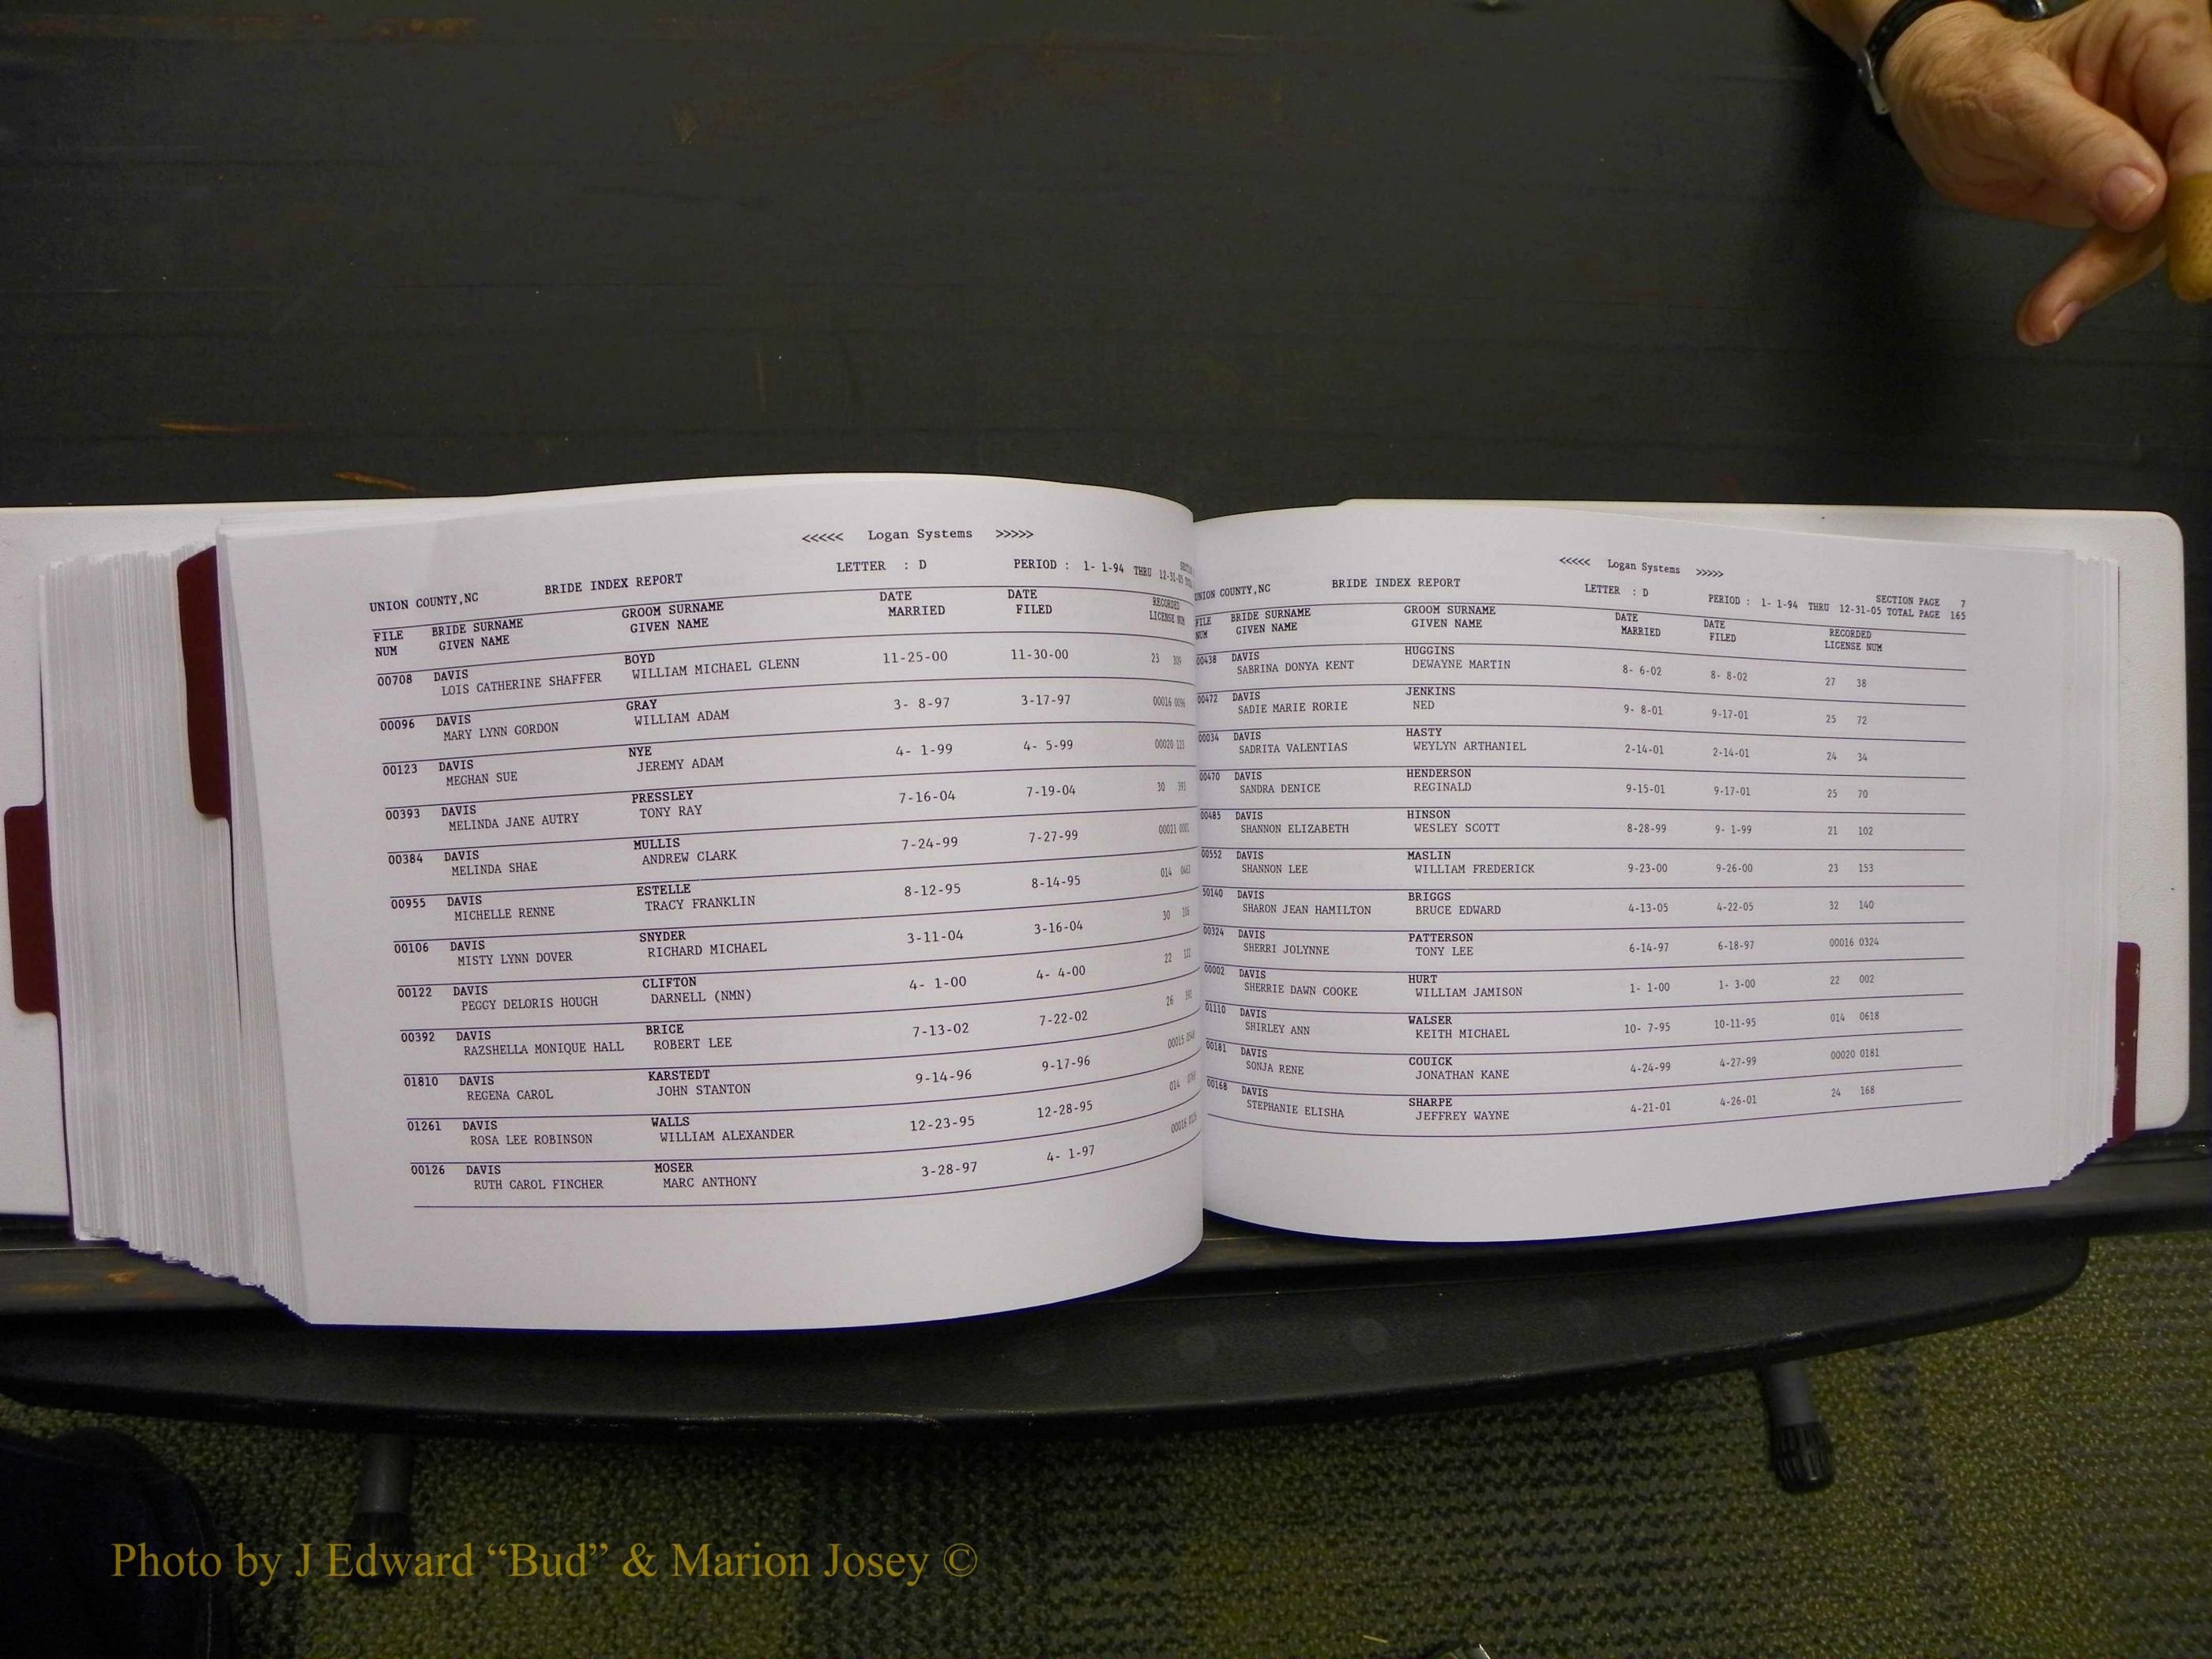 <<<<< Logan Systems >>>>>
UNION COUNTY,NC BRIDE INDEX REPORT LETTER : D PERIOD : 1- 1-94 THRU 12-31-05
FILE BRIDE SURNAME GROOM SURNAME DATE DATE RECORDED
NUM GIVEN NAME GIVEN NAME MARRIED FILED LICENSE NUM
00708 DAVIS BOYD 11-25-00 11-30-00 23
LOIS CATHERINE SHAFFER WILLIAM MICHAEL GLENN
00096 DAVIS GRAY 3- 8-97 3-17-97 00016 0096
MARY LYNN GORDON WILLIAM ADAM
00123 DAVIS NYE 4- 1-99 4- 5-99 00020
MEGHAN SUE JEREMY ADAM
00393 DAVIS PRESSLEY 7-16-04 7-19-04 30
MELINDA JANE AUTRY TONY RAY
00384 DAVIS MULLIS 7-24-99 7-27-99 00021
MELINDA SHAE ANDREW CLARK
00955 DAVIS ESTELLE 8-12-95 8-14-95 014
MICHELLE RENNE TRACY FRANKLIN
00106 DAVIS SNYDER 3-11-04 3-16-04 30
MISTY LYNN DOVER RICHARD MICHAEL
00122 DAVIS CLIFTON 4- 1-00 4- 4-00 22
PEGGY DELORIS HOUGH DARNELL (NMN)
00392 DAVIS BRICE 7-13-02 7-22-02 26
RAZSHELLA MONIQUE HALL ROBERT LEE
01810 DAVIS KARSTEDT 9-14-96 9-17-96 00015
REGENA CAROL JOHN STANTON
01261 DAVIS WALLS 12-23-95 12-28-95 014
ROSA LEE ROBINSON WILLIAM ALEXANDER
00126 DAVIS MOSER 3-28-97 4- 1-97 00016
RUTH CAROL FINCHER MARC ANTHONY
<<<<< Logan Systems >>>>>
UNION COUNTY,NC BRIDE INDEX REPORT LETTER : D SECTION PAGE 7
PERIOD : 1- 1-94 THRU 12-31-05 TOTAL PAGE 165
FILE BRIDE SURNAME GROOM SURNAME DATE DATE RECORDED
NUM GIVEN NAME GIVEN NAME MARRIED FILED LICENSE NUM
00438 DAVIS HUGGINS 8- 6-02 8- 8-02 27 38
SABRINA DONYA KENT DEWAYNE MARTIN
00472 DAVIS JENKINS 9- 8-01 9-17-01 25 72
SADIE MARIE RORIE NED
00034 DAVIS HASTY 2-14-01 2-14-01 24 34
SADRITA VALENTIAS WEYLYN ARTHANIEL
00470 DAVIS HENDERSON 9-15-01 9-17-01 25 70
SANDRA DENICE REGINALD
00485 DAVIS HINSON 8-28-99 9- 1-99 21 102
SHANNON ELIZABETH WESLEY SCOTT
00552 DAVIS MASLIN 9-23-00 9-26-00 23 153
SHANNON LEE WILLIAM FREDERICK
50140 DAVIS BRIGGS 4-13-05 4-22-05 32 140
SHARON JEAN HAMILTON BRUCE EDWARD
00324 DAVIS PATTERSON 6-14-97 6-18-97 00016 0324
SHERRI JOLYNNE TONY LEE
00002 DAVIS HURT 1- 1-00 1- 3-00 22 002
SHERRIE DAWN COOKE WILLIAM JAMISON
01110 DAVIS WALSER 10- 7-95 10-11-95 014 0618
SHIRLEY ANN KEITH MICHAEL
00181 DAVIS COUICK 4-24-99 4-27-99 00020 0181
SONJA RENE JONATHAN KANE
00168 DAVIS SHARPE 4-21-01 4-26-01 24 168
STEPHANIE ELISHA JEFFREY WAYNE
Photo by J Edward “Bud” & Marion Josey ©